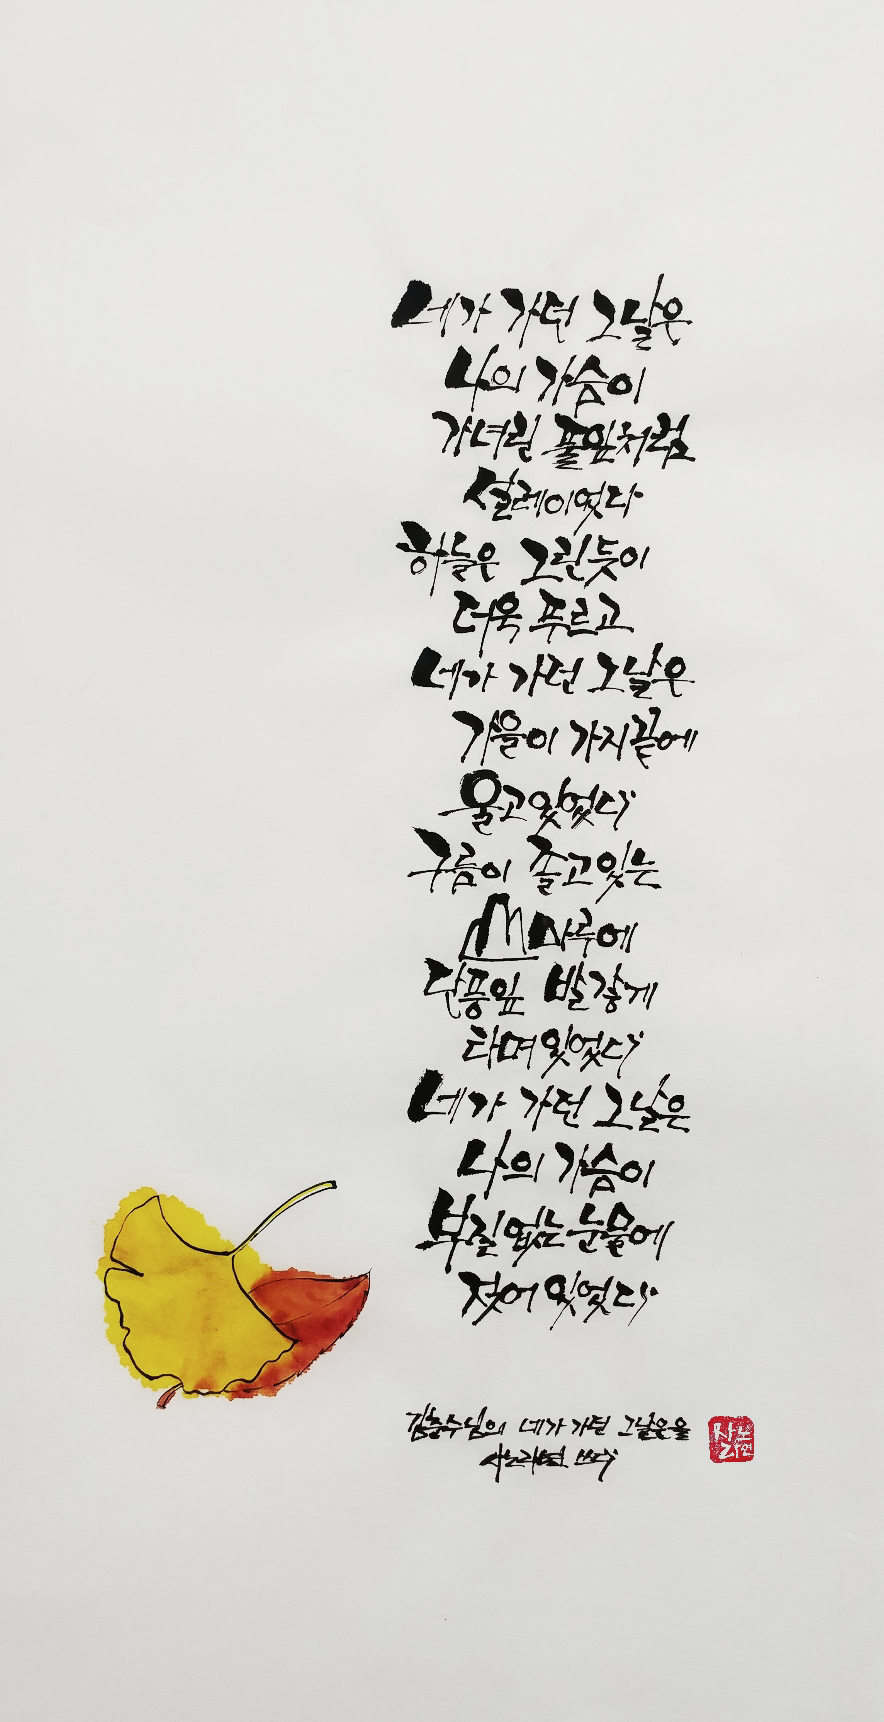 네가 가던 그날은
나의 가슴이
가녀린 풀잎처럼
설레이였다
하늘은 그린듯이
더욱 푸르고
네가 가던 그날은
가을이 가지끝에
울고있었다
구름이 졸고있는
山마루에
단풍잎 발갛게
타며있었다
네가 가던 그날은
나의 가슴이
부질없는 눈물에
젖어있었다
김춘수님의 네가 가던 그날은을
쓰다